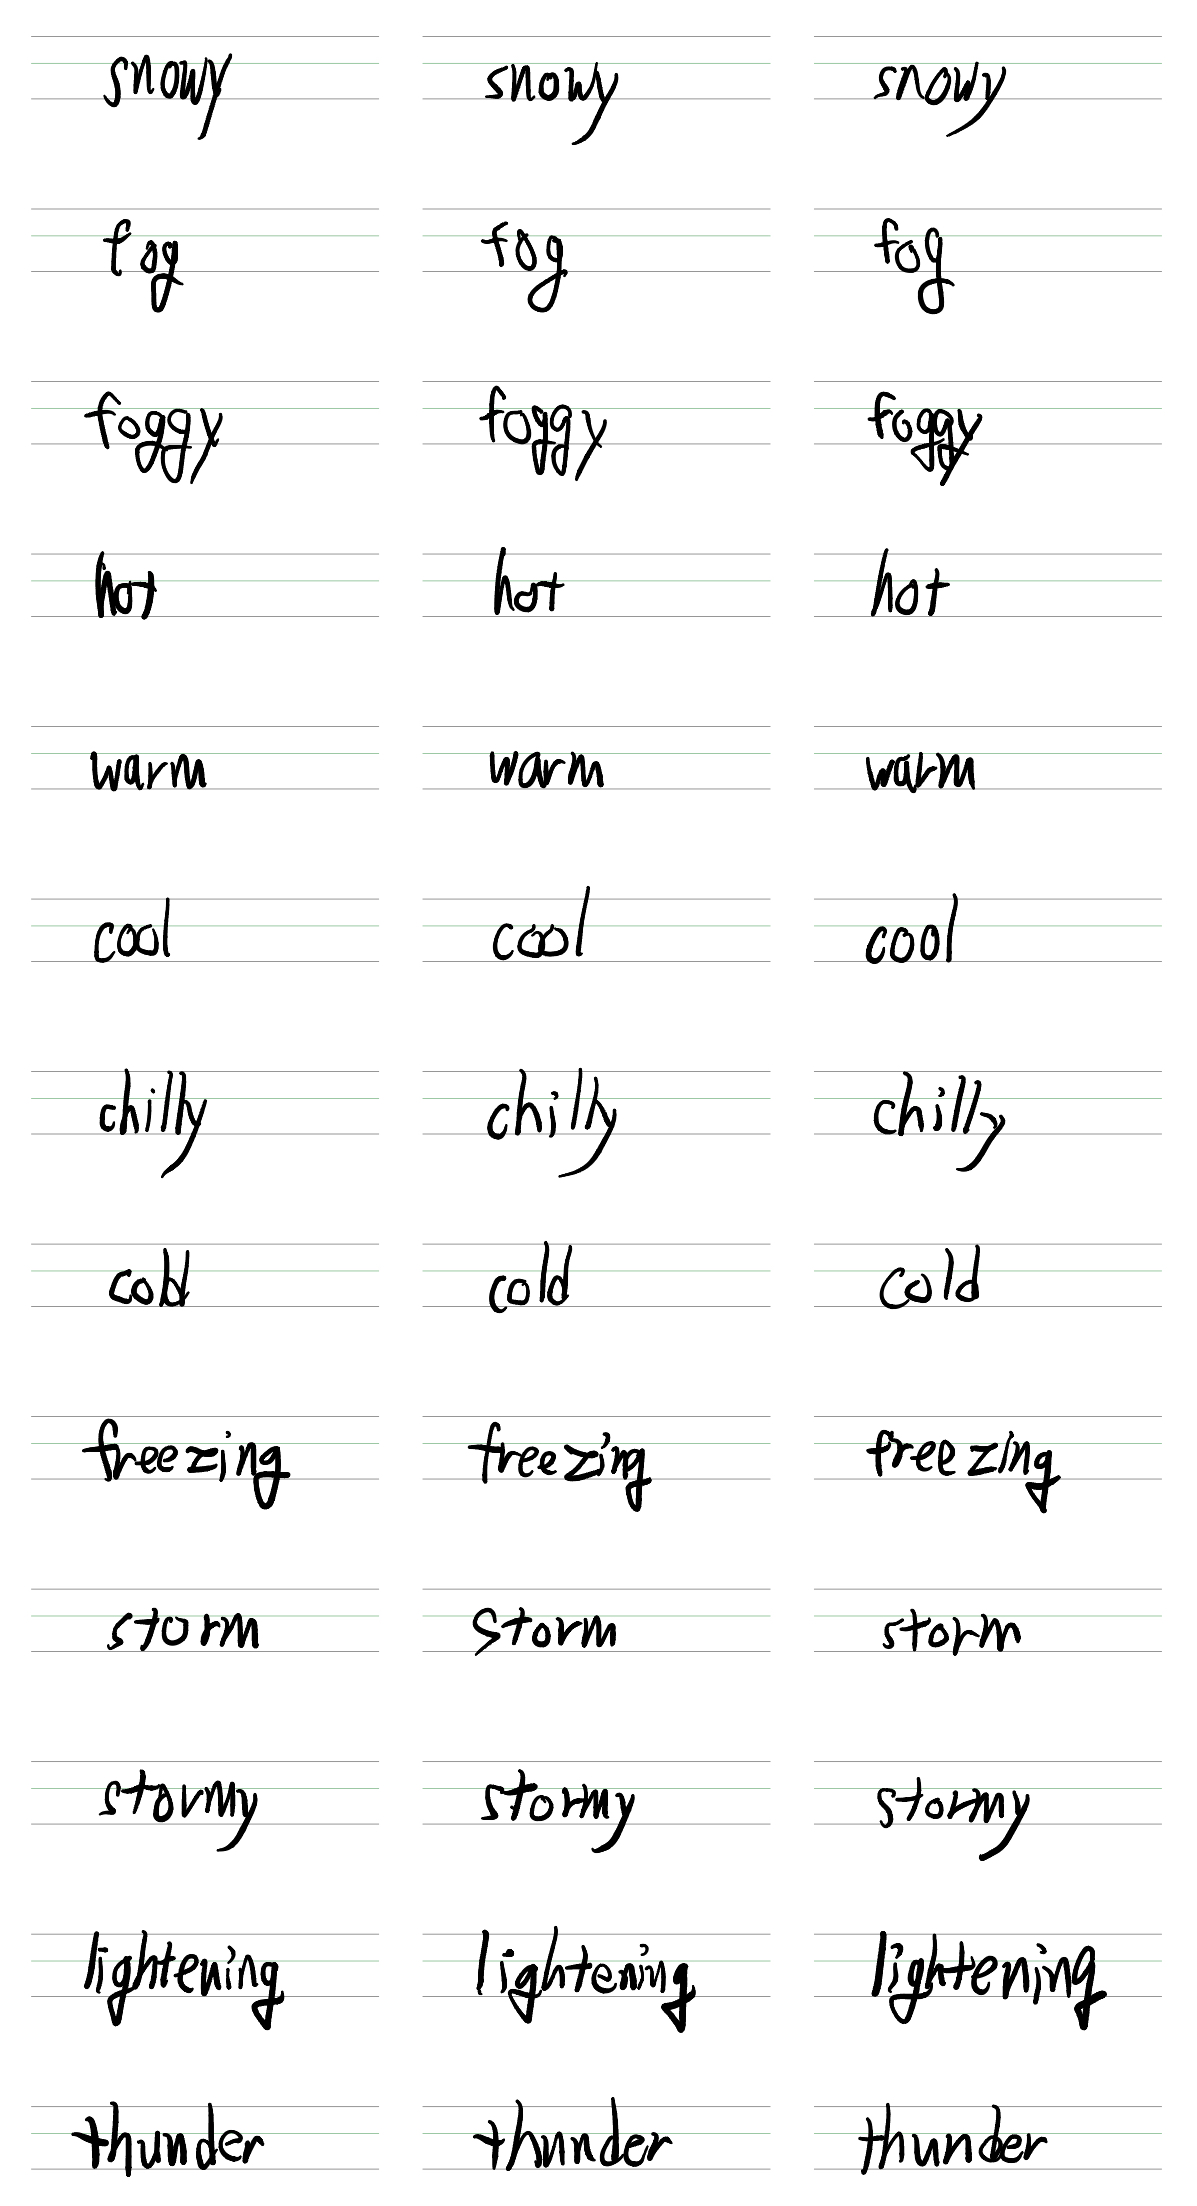 snowy snowy snowy
fog fog fog
foggy foggy foggy
hot hot hot
warm warm warm
cool cool cool
chilly chilly chilly
cold cold cold
freezing freezing freezing
storm storm storm
stormy stormy stormy
lightening lightening lightening
thunder thunder thunder